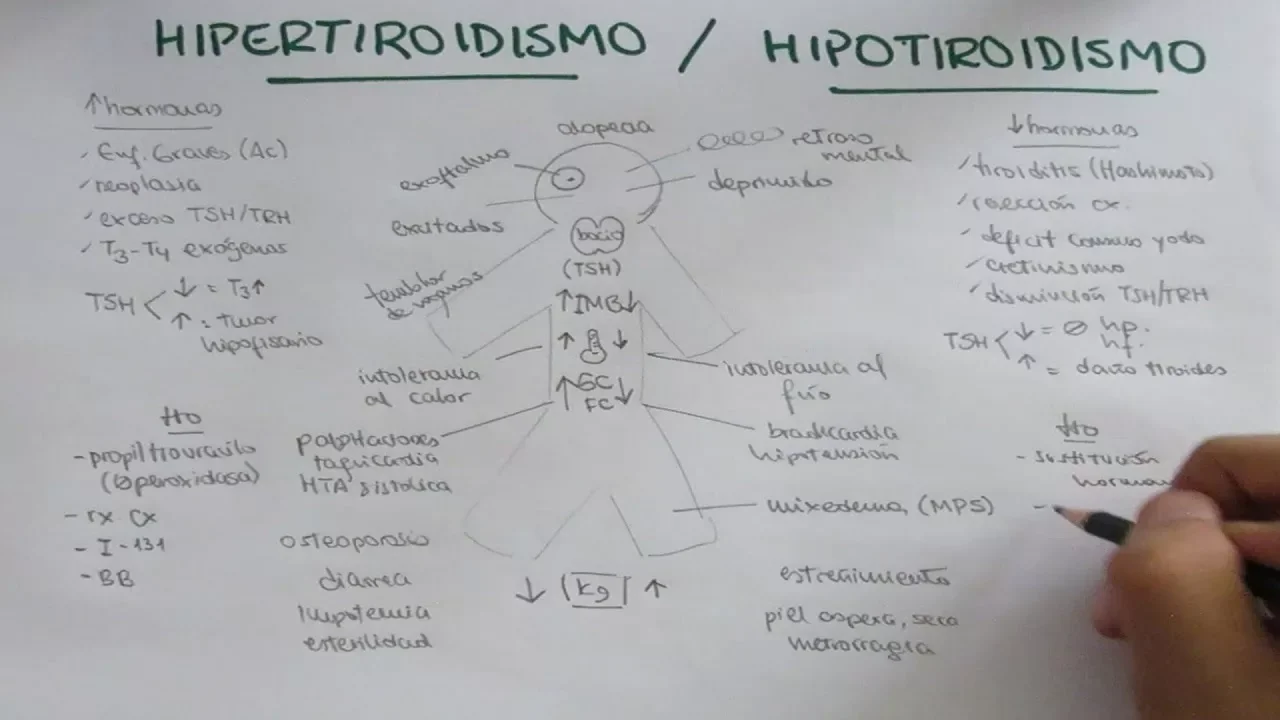 HIPERTIROIDISMO / HIPOTIROIDISMO
↑hormonas
✓ Enf. Graves (Ac)
✓ neoplasia
✓ exceso TSH/TRH
✓ T3-T4 exógenas
TSH < ↓ = T3↑
↑ = tumor
hipofisario
tto
- propiltiouracilo
(∅peroxidasa)
- rx cx
- I-131
- BB
alopecia
exoftalmo
exaltados
temblor
de manos
intolerancia
al calor
palpitaciones
taquicardia
HTA sistólica
osteoporosis
diarrea
impotencia
esterilidad
bocio
(TSH)
↑IMB↓
↑ ↓
↑GC↓
FC
↓ (kg) ↑
retraso
mental
deprimido
intolerancia al
frío
bradicardia
hipotensión
mixedema, (MPS)
estreñimiento
piel aspera, seca
metrorragia
↓hormonas
✓tiroiditis (Hashimoto)
✓resección cx.
✓deficit consumo yodo
✓cretinismo
✓disminución TSH/TRH
TSH < ↓ = ∅ hp.
hf.
↑ = daño tiroides
tto
- sustitución
hormon
-